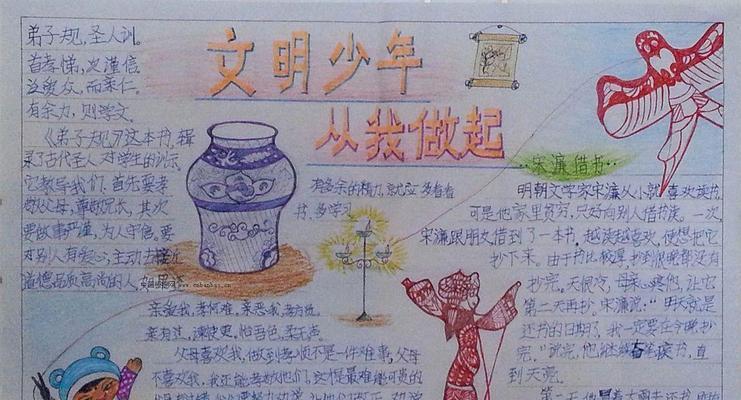 文明少年
从我做起
弟子规，圣人训。
首孝悌，次谨信。
泛爱众，而亲仁，
有余力，则学文。
《弟子规》这本书，辑
录了古代圣人对学生的训示，
它教导我们，首先要孝
敬父母，尊敬兄长，其次
要做事严谨，为人守信，要
对别人有爱心，主动去接近
道德品质高尚的人，
有多余的精力，就应多看看
书，多学习
www.cnbanbai.cn
亲爱我，孝何难，亲恶我，孝方贤。
亲有过，谏使更，怡吾色，柔吾声。
父母喜欢我，做到孝顺不是一件难事，父母
不喜欢我，我还能孝敬他们，这样最难能可贵的
宋濂借书
明朝文学家宋濂从小就喜欢读书，
可是他家里贫穷，只好向别人借书读。一次，
宋濂跟朋友借到了一本书，越读越喜欢，便想把它
抄下来。由于书比较厚，抄到很晚都没有
抄完，天很冷，母亲心疼他，让它
第二天再抄。宋濂说：“明天就是
还书的日期了，我一定要在今晚抄
完。”说完，他继续奋笔疾书，直
到天亮。
第二天，他冒着大雪去还书